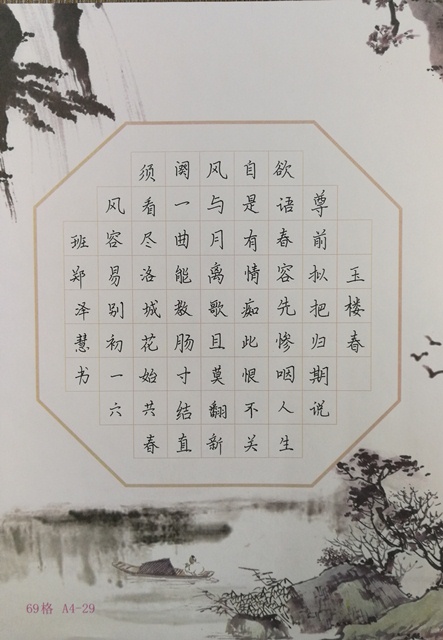 玉楼春
尊前拟把归期说
欲语春容先惨咽人生
自是有情痴此恨不关
风与月离歌且莫翻新
阕一曲能教肠寸结直
须看尽洛城花始共春
风容易别初一六
班郑泽慧书
69格 A4-29